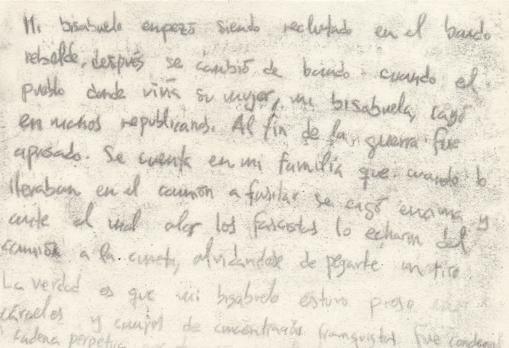 Mi bisabuelo empezó siendo reclutado en el bando
rebelde, después se cambió de bando cuando el
pueblo donde vivía su mujer, mi bisabuela, cayó
en manos republicanas. Al fin de la guerra fue
apresado. Se cuenta en mi familia que cuando lo
llevaban en el camión a fusilar se cagó encima y
ante el mal olor los fascistas lo echaron del
camión a la cuneta, olvidándose de pegarle un tiro.
La verdad es que mi bisabuelo estuvo preso en
cárceles y campos de concentración franquistas fue
cadena perpetua